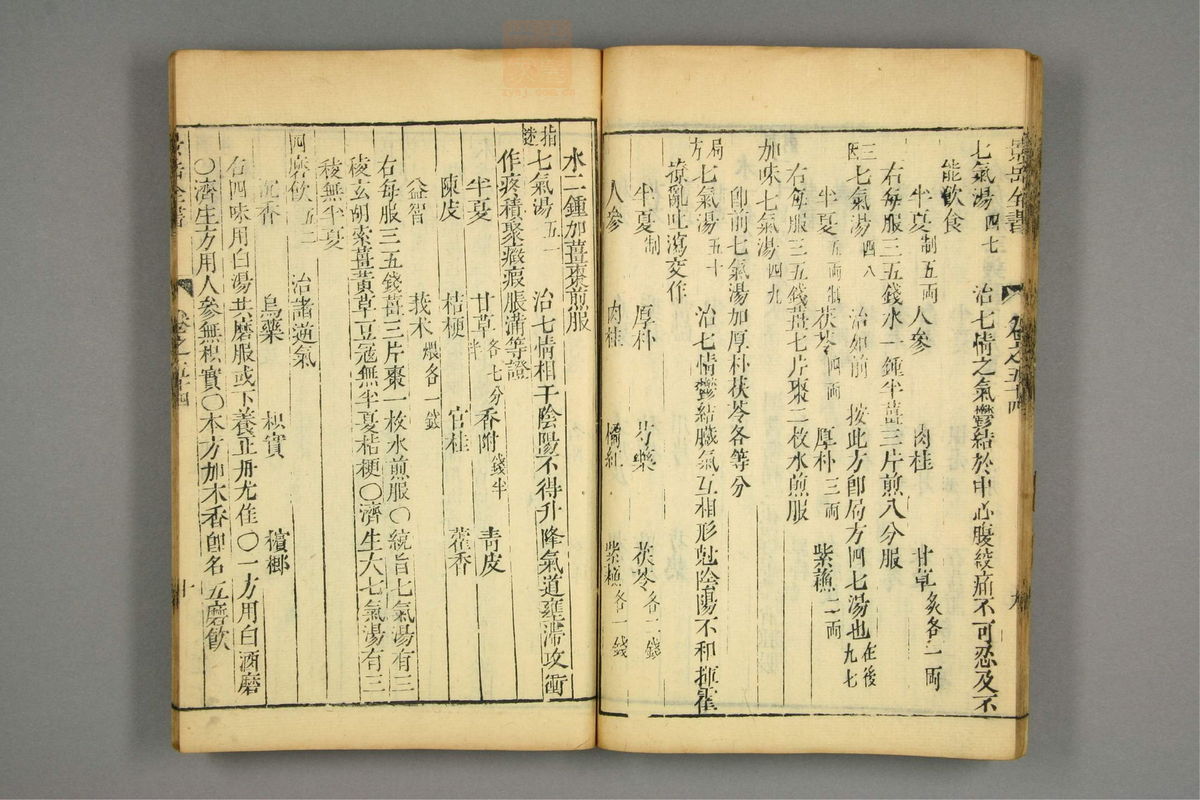 七氣湯 四七 治七情之氣鬱結於中心腹絞痛不可忍及不
能飲食
半夏 制五両 人參 肉桂 甘草 炙各一両
右每服三五錢水一鍾半薑三片煎八分服
三因七氣湯 四八 治如前 按此方卽局方四七湯也 在後九七
半夏 五両制 茯苓 四両 厚朴 三両 紫蘓 二両
右每服三五錢薑七片棗二枚水煎服
加味七氣湯 四九
卽前七氣湯加厚朴茯苓各等分
局方七氣湯 五十 治七情鬱結臟氣互相形尅陰陽不和揮霍
撩亂吐瀉交作
半夏 制 厚朴 芍藥 茯苓 各二錢
人參 肉桂 橘紅 紫蘓 各一錢
景岳全書 卷之五十四
水二鍾加薑棗煎服
指迷七氣湯 五一 治七情相干陰陽不得升降氣道壅滯攻衝
作疼積聚癥瘕脹滿等證
半夏 甘草 各七分半 香附 錢半 青皮
陳皮 桔梗 官桂 藿香
益智 莪术 煨各一錢
右每服三五錢薑三片棗一枚水煎服〇統旨七氣湯有三
稜玄胡索薑黃草豆蔻無半夏桔梗〇濟生大七氣湯有三
稜無半夏
四磨飲 五二 治諸逆氣
沉香 烏藥 枳實 檳榔
右四味用白湯共磨服或下養正丹尤佳〇一方用白酒磨
〇濟生方用人參無枳實〇本方加木香卽名五磨飲
景岳全書 卷之五十四 十
zysj.com.cn